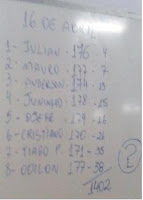 16 DE ABRIL
1- JULIAN - 176 - 4
2- MAURO - 177 - 7
3- ANDERSON - 174 -
4- JUNINHO - 178 -
5- - 179 - 26
6- CRISTIANO - 170 - 26
7- TIAGO P. - 171 - 35
8- ODILON - 177 - 38
1402
?